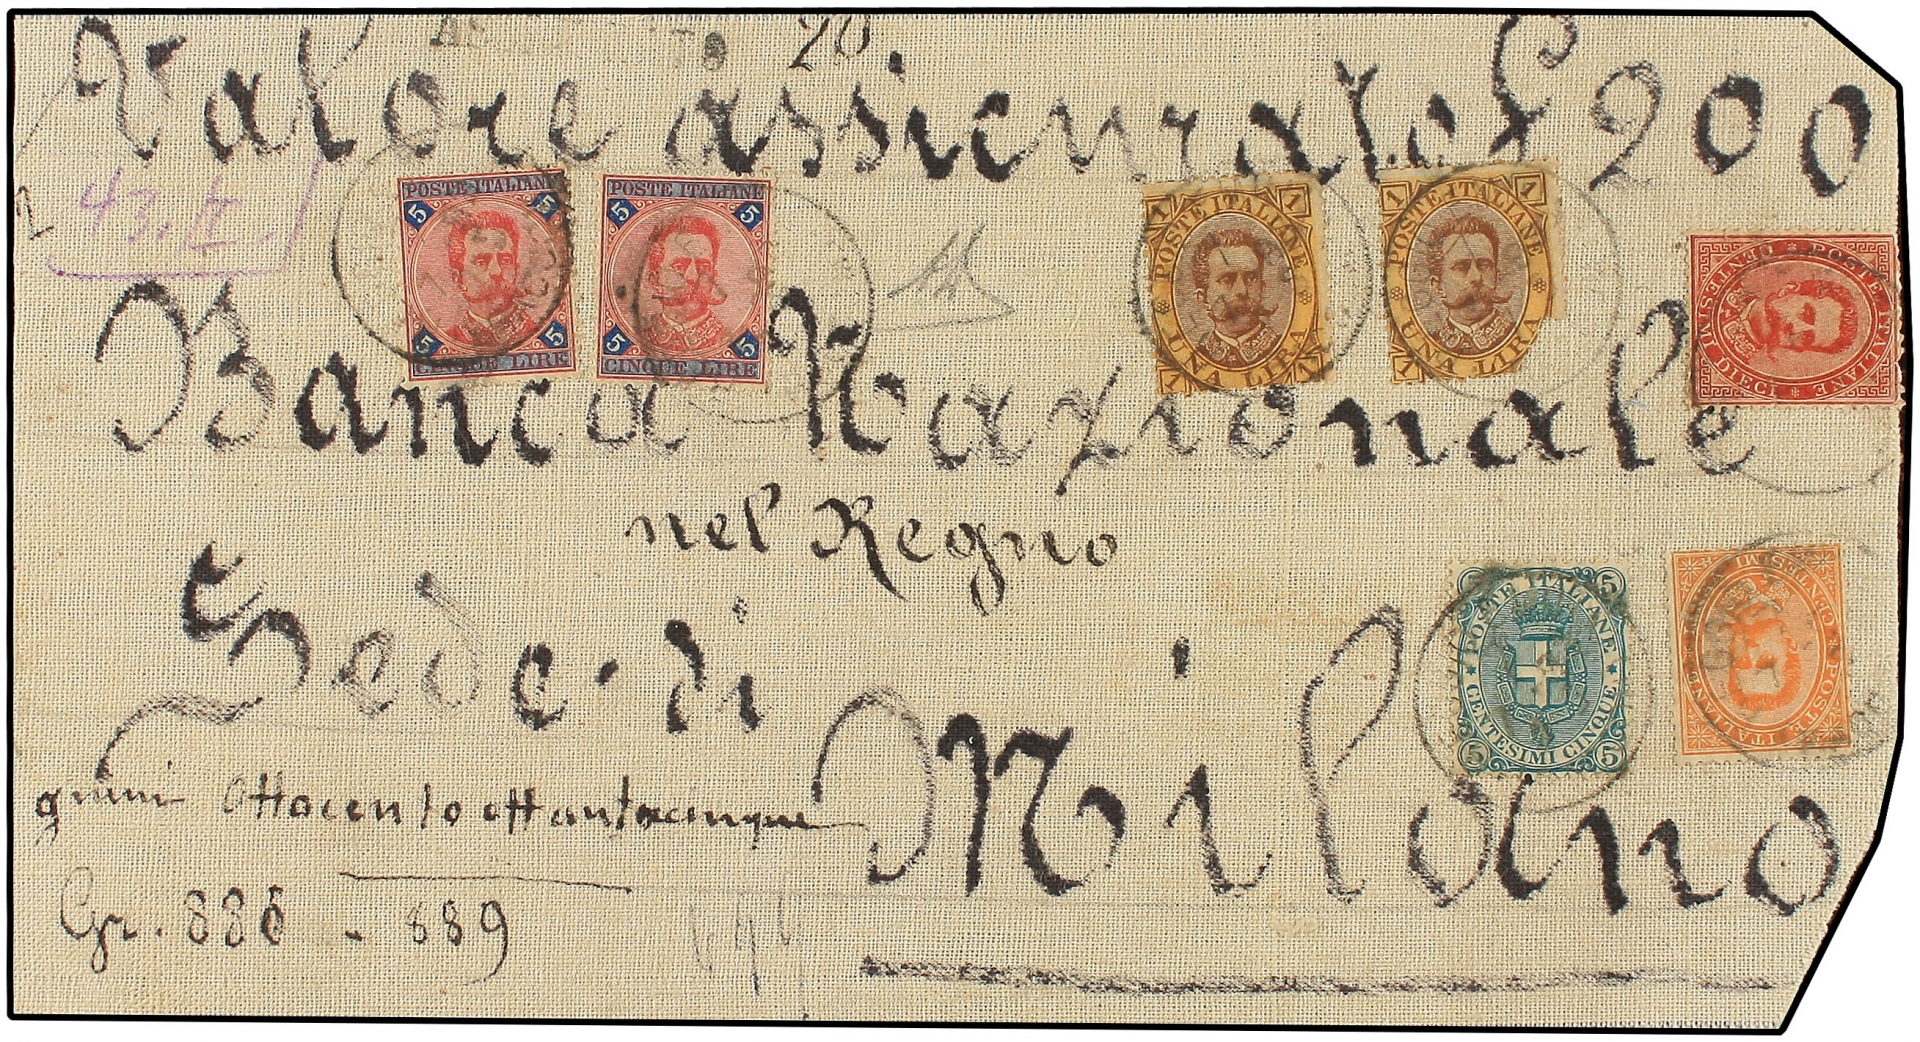 20.
Valore assicurato £ 200
43. II.
POSTE ITALIANE
5 5
5 5
CINQUE LIRE
POSTE ITALIANE
5 5
5 5
CINQUE LIRE
1 POSTE ITALIANE 1
1 UNA LIRA 1
1 POSTE ITALIANE 1
1 UNA LIRA
POSTE ITALIANE
CENTESIMI DIECI
Banca Nazionale
nel Regno
Sede di
POSTE ITALIANE 5
5 CENTESIMI CINQUE 5
POSTE ITALIANE
CENTESIMI
Milano
grami Ottocento ottantacinque
Gr. 885 - 889